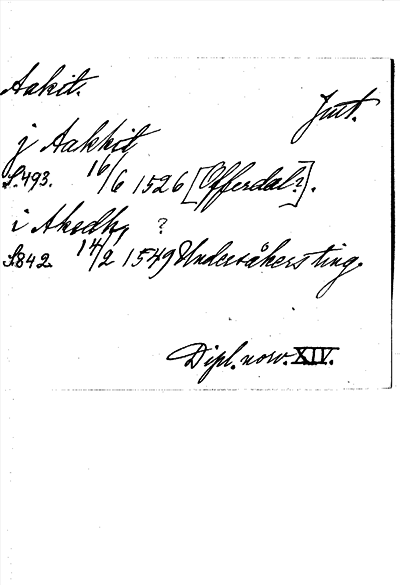 Aakit.
Jmt.
j Aakkit
S.493. 16/6 1526 [Offerdal?].
i Aksdh, ?
S.842 14/2 1549 Undersåkers ting.
Dipl. norv. XIV.